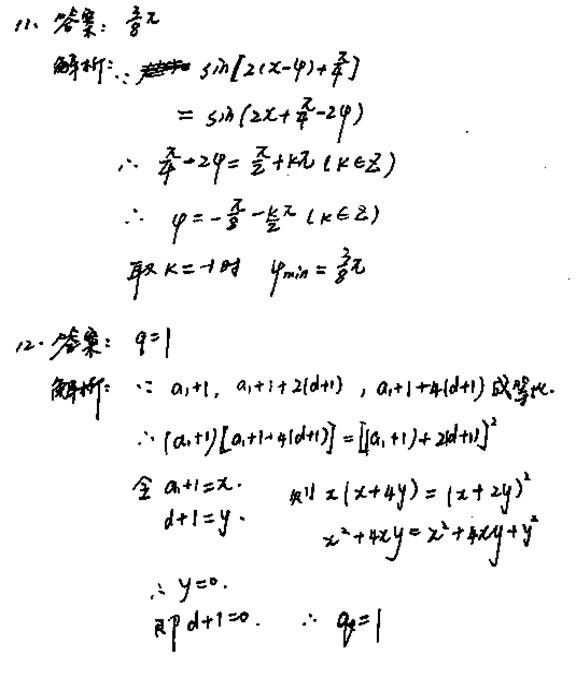 11. 答案: 3/8 π
解析: ∵ sin[2(x-φ)+π/4]
= sin(2x+π/4-2φ)
∴ π/4-2φ=π/2+kπ (k∈Z)
∴ φ=-π/8-k/2 π (k∈Z)
取 k=-1时 φmin=3/8 π
12. 答案: q=1
解析: ∵ a₁+1, a₁+1+2(d+1), a₁+1+4(d+1) 成等比.
∴ (a₁+1)[a₁+1+4(d+1)]=[(a₁+1)+2(d+1)]²
令 a₁+1=x. 则 x(x+4y)=(x+2y)²
d+1=y. x²+4xy=x²+4xy+y²
∴ y=0.
即 d+1=0. ∴ q=1